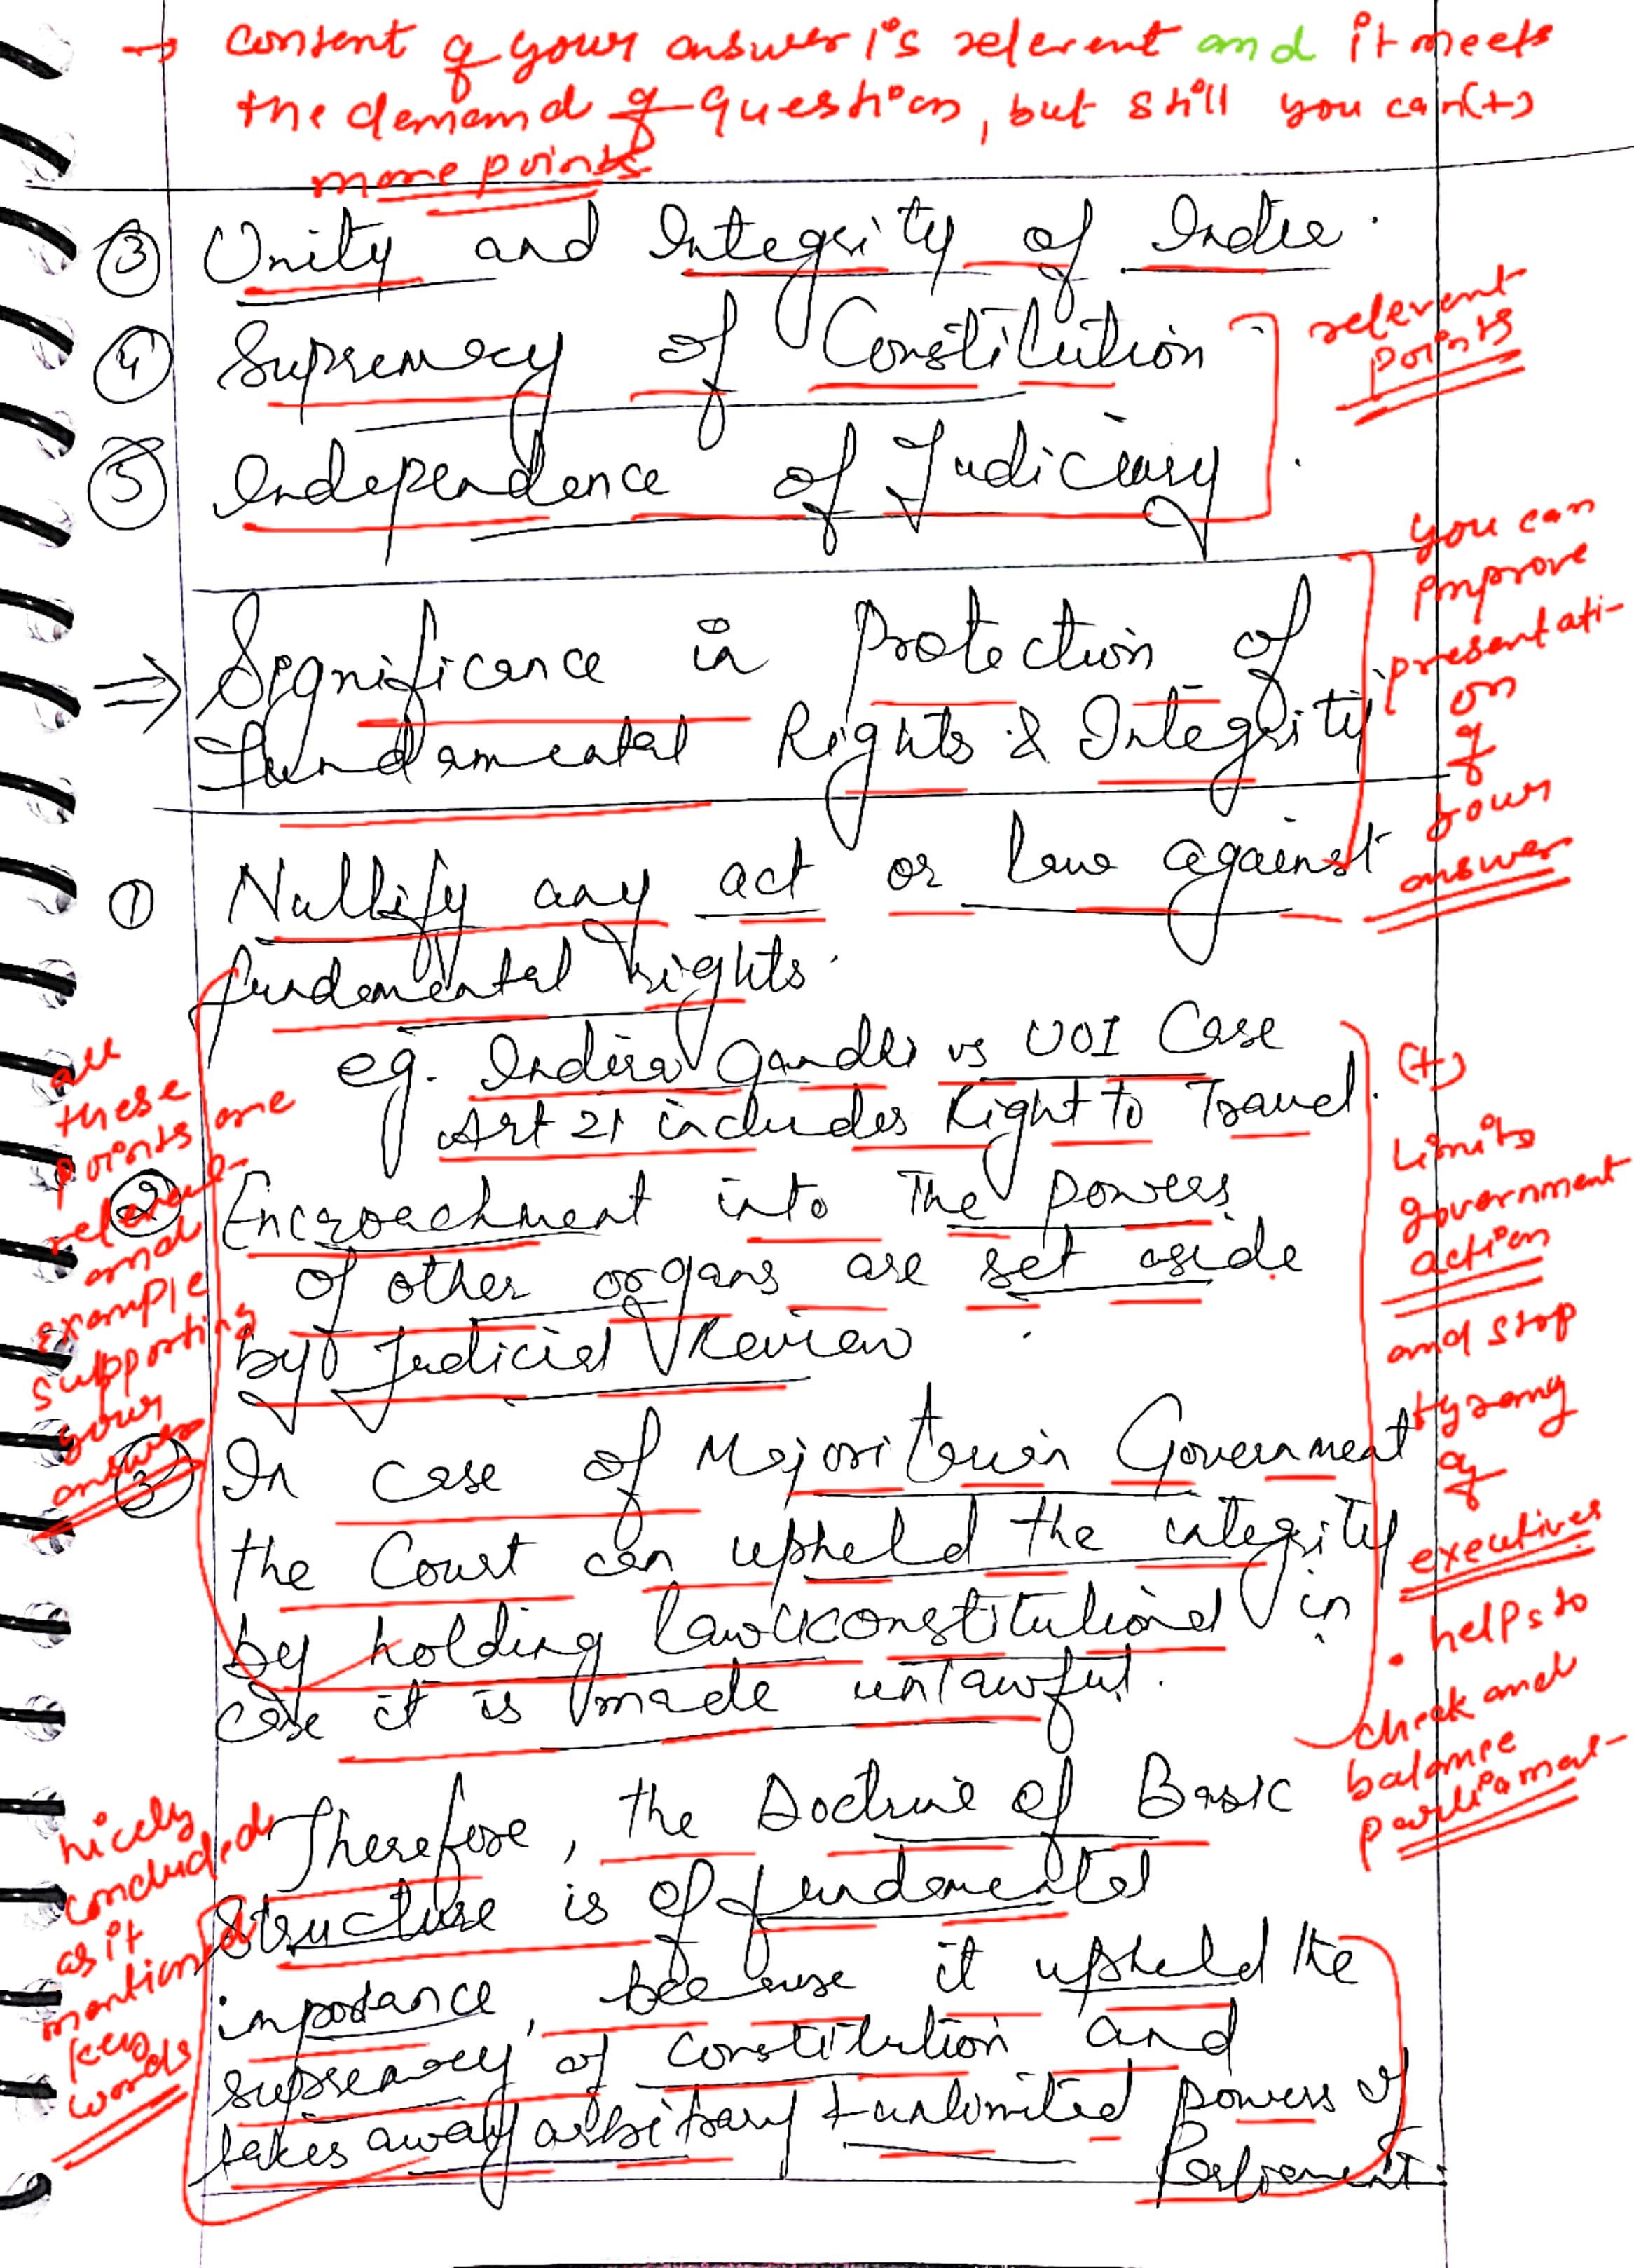 → content of your answer is relevent and it meets
the demand of question, but still you can (+)
more points
③ Unity and Integrity of India.
④ Supremacy of Constitution
⑤ Independence of Judiciary.
relevent
points
⇒ Significance in Protection of
fundamental Rights & Integrity
you can
improve
presentati-
on
of
your
answer
① Nullify any act or law against
fundamental rights.
eg. Indira Gandhi vs UOI Case
Art 21 includes Right to Travel.
② Encroachment into the powers
of other organs are set aside
by Judicial Review.
③ In case of Majoritarian Government
the Court can upheld the integrity
by holding law constitutional in
case it is made unlawful.
all
these
points are
relevant
and
example
supporting
your
answer
(+)
Limits
government
action
and stop
tyranny
of
executives
• helps to
check and
balance
parliamen-
Therefore, the Doctrine of Basic
Structure is of fundamental
importance, because it upheld the
supremacy of Constitution and
takes away arbitrary & unlimited powers of
Parliament.
nicely
concluded
as it
mentioned
key
words